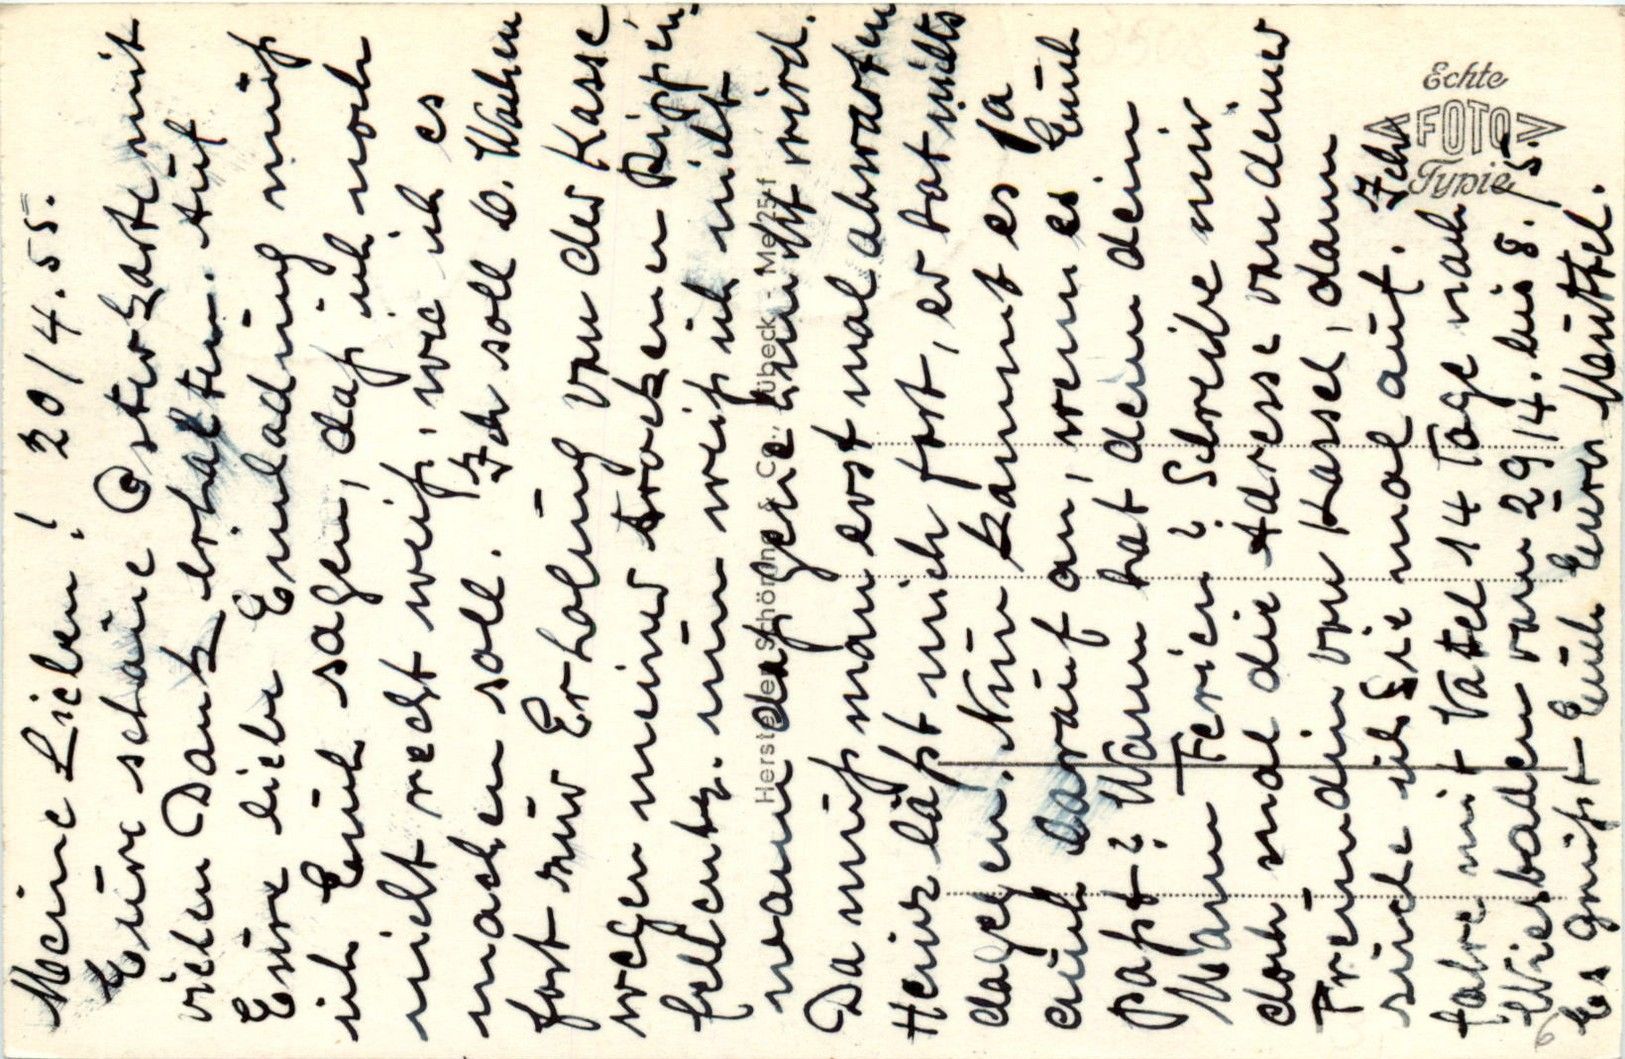 Meine Lieben! 20/4.55.
Eure schöne Osterkarte mit
vielen Dank erhalten. Auf
Eure liebe Einladung muß
ich Euch sagen, daß ich noch
nicht recht weiß, wie ich es
machen soll. Ich soll 6. Wochen
fort zur Erholung von der Kasse
wegen meiner trocknen Rippen
fellentz. nun weiß ich nicht
wann das genehmigt wird.
Da muß man erst mal abwarten
Heinz läßt mich fort, er hat nichts
dagegen. Nun kommt es ja
auch darauf an, wenn es Euch
paßt? Wann hat denn dein
Mann Ferien? Schreibe mir
doch mal die Adresse von deiner
Freundin von Kassel, dann
suche ich Sie mal auf. Ich
fahre mit Vatel 14 Tage nach
Wiesbaden vom 29/4. bis 8./5.
Es grüßt Euch Eure Muttel.
Echte
FOTO
Typie
Hersteller Schöning & Co., Lübeck